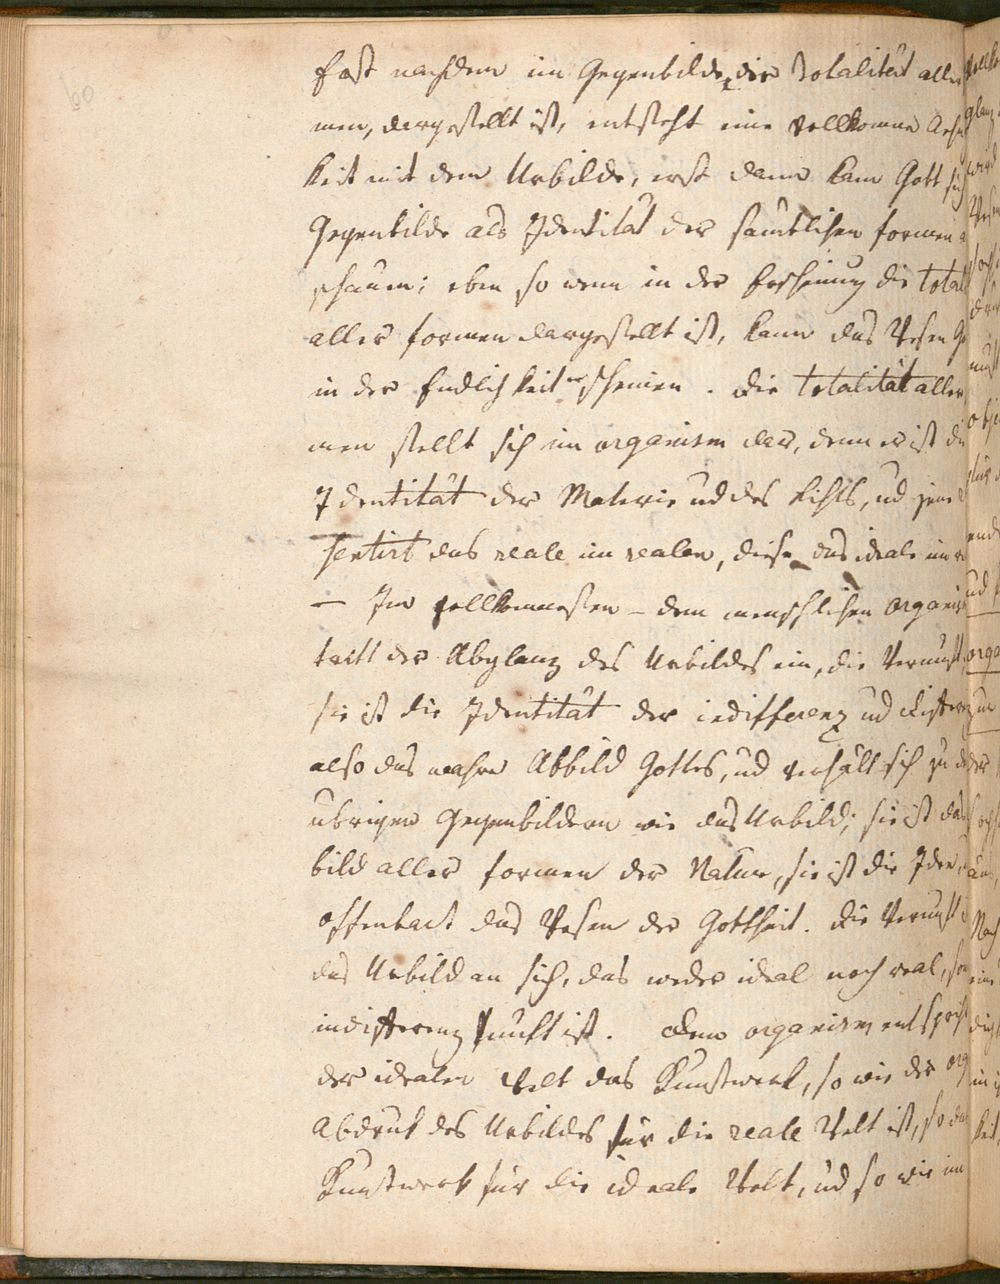 fast nachdem im Gegenbilde die Totalität aller
men, dargestellt ist, entsteht eine vollkomne Aehn
keit mit dem Urbilde, erst dann kann Gott sich
Gegenbilde als Identität der sämtlichen formen a
schauen; eben so wenn in der Erscheinung die total
aller formen dargestellt ist, kann das Wesen Go
in der Endlichkeit erscheinen. Die totalität aller
men stellt sich im organism dar, denn er ist die
Identität der Materie ud des Lichts, ud jene
sentirt das reale im realen, diese das ideale im re
– Im vollkommensten – dem menschlichen organis
tritt der Abglanz des Urbildes ein, die Vernunft,
sie ist die Identität der indifferenz ud differenz
also das wahre Abbild Gottes, ud verhält sich zu de
übrigen Gegenbildern wie das Urbild; sie ist das
bild aller formen der Natur, sie ist die Idee,
offenbart das Wesen der Gottheit. Die Vernunft
das Urbild an sich, das weder ideal noch real, son
indifferenz ist. Dem organism entspricht
der idealen Welt das Kunstwerk, so wie der org
Abdruk des Urbildes für die reale Welt ist, so das
Kunstwerk für die ideale Welt, ud so wie im